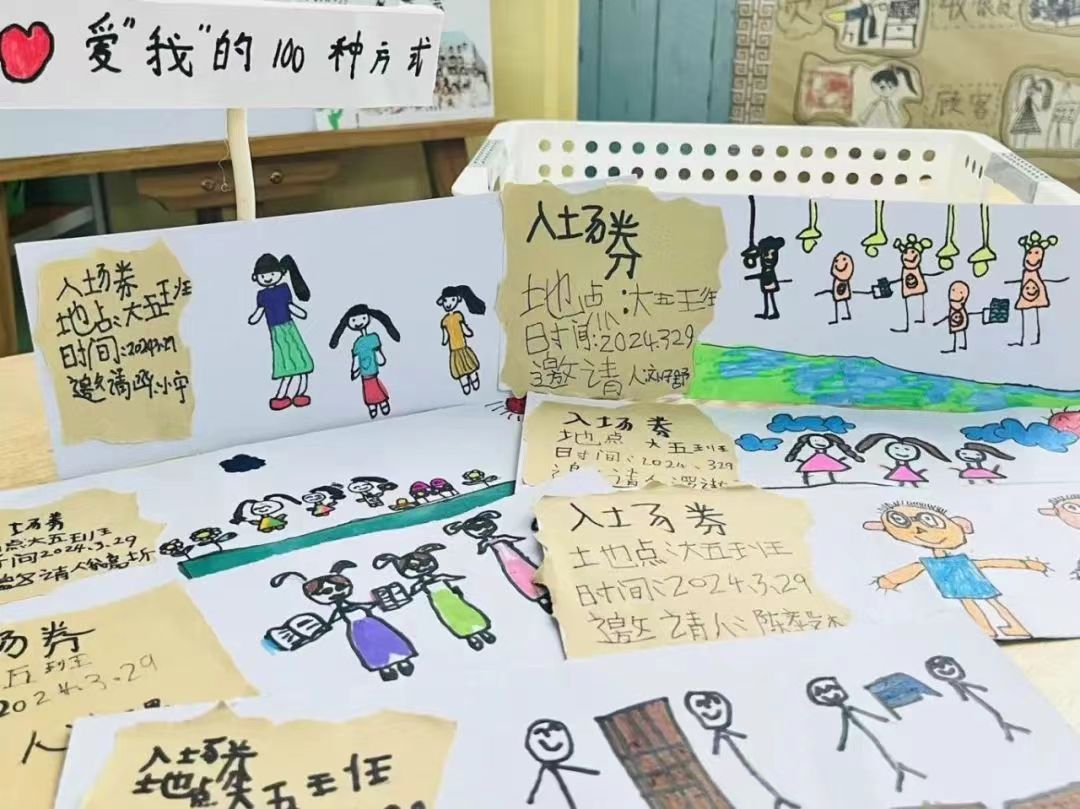 爱"我"的100种方式
收银员
顾客
入场券
地点:大五班
日时间:2024.3.29
入场券
地点:大五班
日时间:2024.329
邀请人
入场券
地点 大五班
日时间:2024.329
请人
场券
点大五班
时间2024.3.29
请人
入场券
地点:大五班
时间:2024.3.29
邀请人:陈
场券
五班
2024.3.29
人
入场券
地点大五